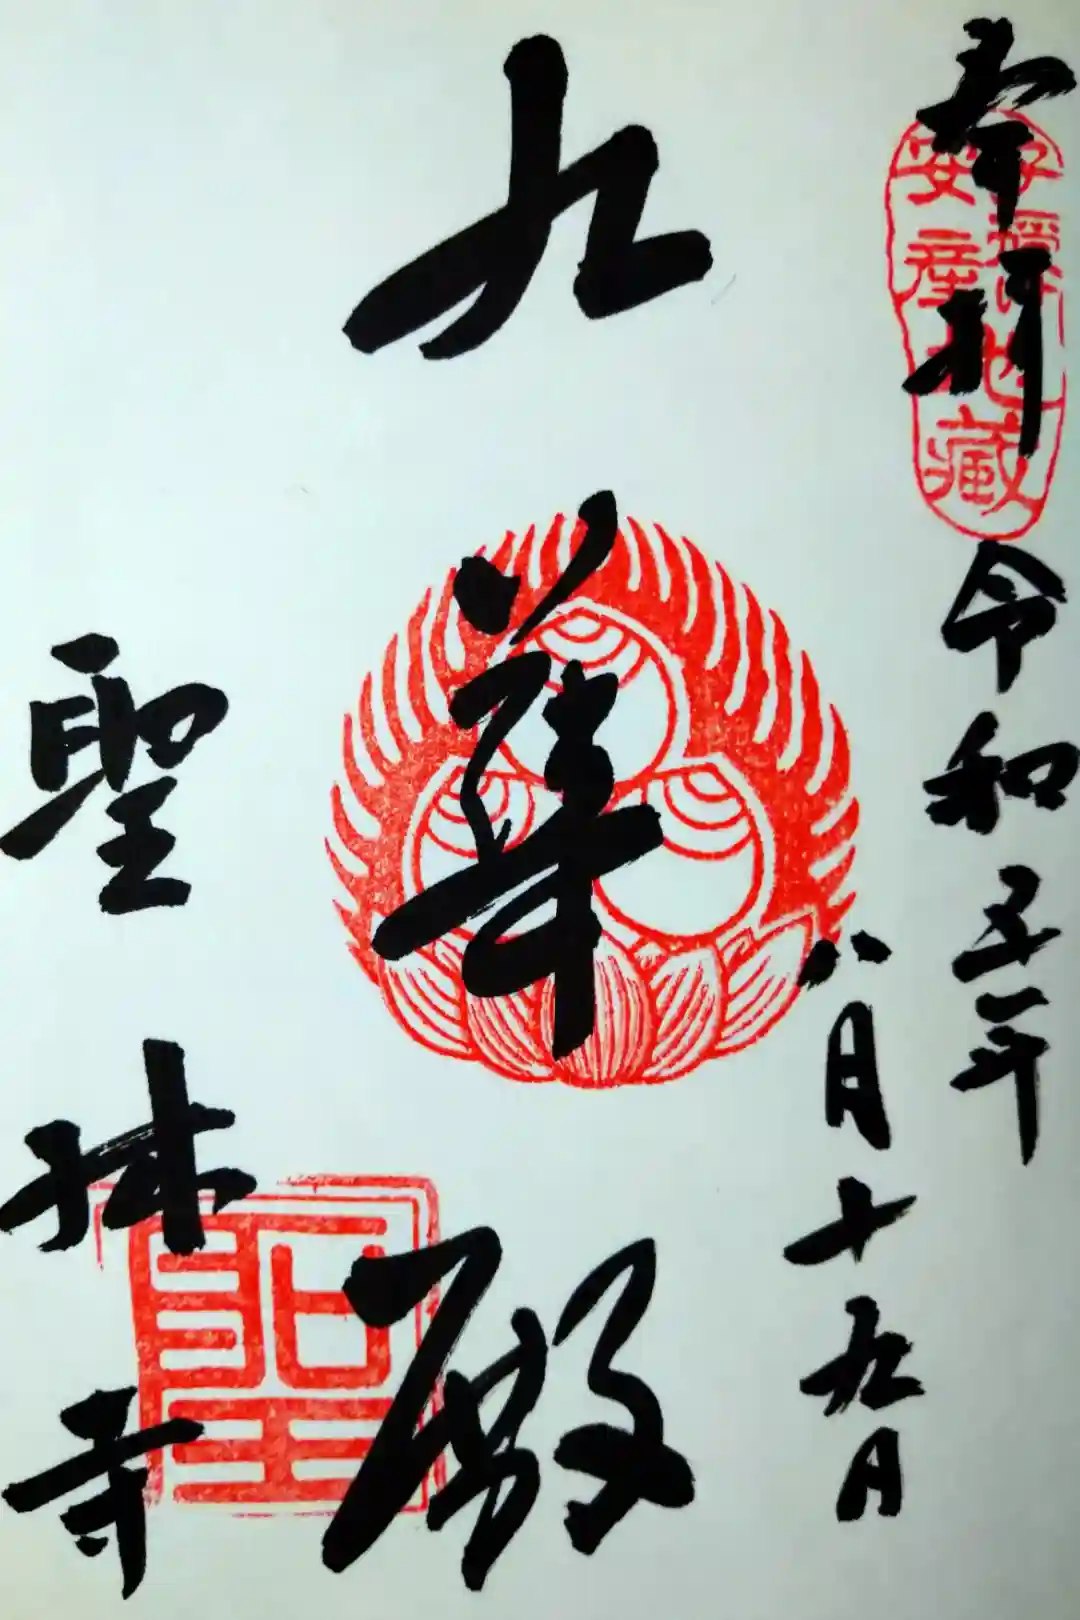 奉拝
令和五年
八月十九日
九華殿
聖林寺
子授
安産
地藏
聖